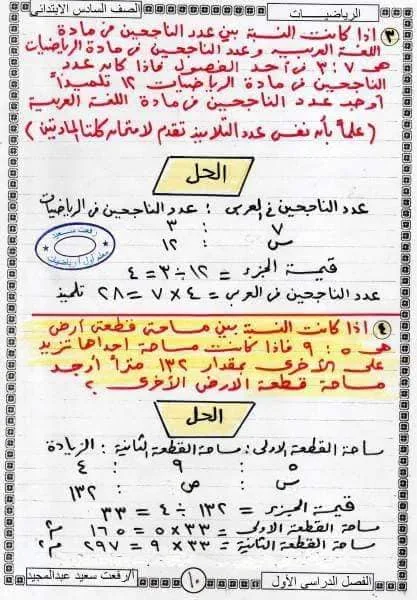 الرياضيات
الصف السادس الابتدائى
٣ اذا كانت النسبة بين عدد الناجحين فى مادة
اللغة العربية وعدد الناجحين فى مادة الرياضيات
هى ٧ : ٣ فى أحد الفصول فاذا كانه عدد
الناجحين فى مادة الرياضيات ١٢ تلميذاً
أوجد عدد الناجحين فى مادة اللغة العربية
( علماً بأنه نفس عدد التلاميذ تقدم لامتحانه كلتا المادتين )
الحل
عدد الناجحين فى العربى : عدد الناجحين فى الرياضيات
٧ : ٣
س : ١٢
رفعت سعيد
معلم أول رياضيات
قيمة الجزء = ١٢ ÷ ٣ = ٤
عدد الناجحين فى العربى = ٤ × ٧ = ٢٨ تلميذ
٤ اذا كانت النسبة بين مساحتى قطعتى أرض
هى ٥ : ٩ فاذا كانت مساحة احداها تزيد
على الأخرى بمقدار ١٣٢ متراً أوجد
مساحة قطعة الارض الأخرى ؟
الحل
مساحة القطعة الاولى : مساحة القطعة الثانية : الزيادة
٥ : ٩ : ٤
س : ص : ١٣٢
قيمة الجزء = ١٣٢ ÷ ٤ = ٣٣
مساحة القطعة الاولى = ٣٣ × ٥ = ١٦٥ م٢
مساحة القطعة الثانية = ٣٣ × ٩ = ٢٩٧ م٢
الفصل الدراسى الأول
١٠
أ/رفعت سعيد عبدالمجيد